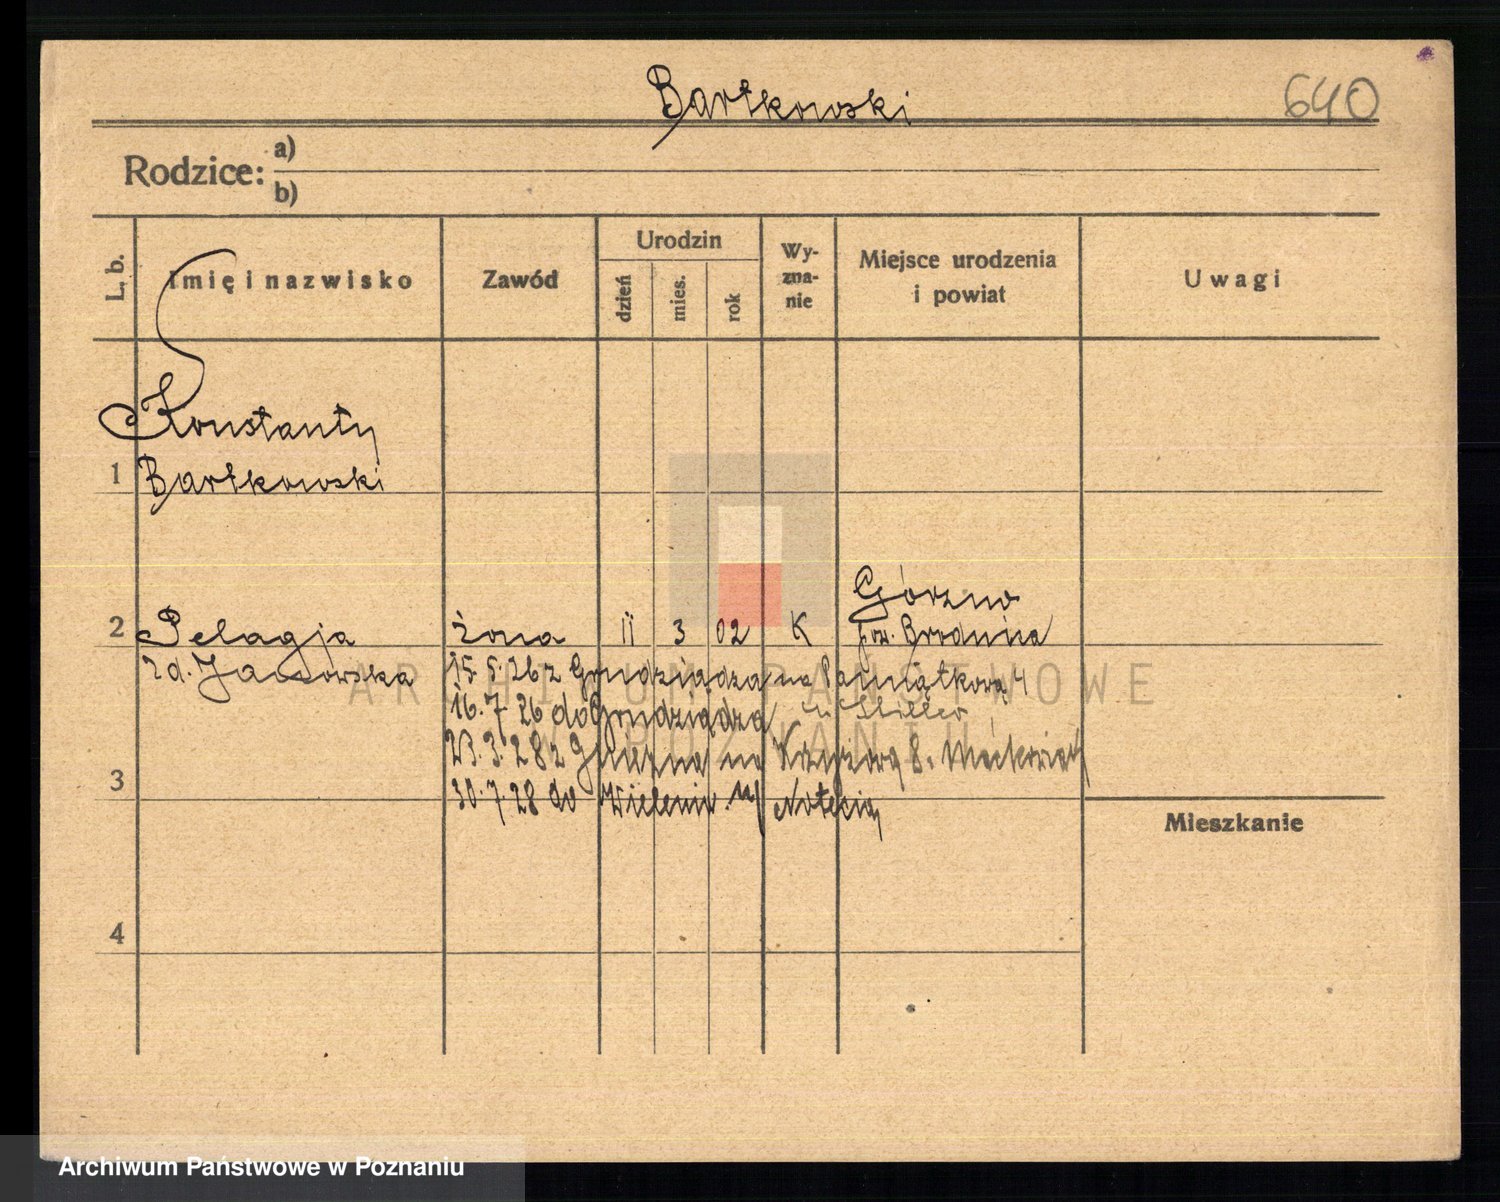 Bartkowski 640
Rodzice: a)
b)
L. b. Imię i nazwisko Zawód Urodzin dzień mies. rok Wyzna-nie Miejsce urodzenia i powiat Uwagi
Konstanty
1 Bartkowski
Górzno
2 Pelagja żona 11 3 02 K pow. Brodnica
zd. Jaworska 15.5.26 z Grudziądza na Pamiątkową 4
16.7 26 do Grudziądza u Stiller
23.3.28 z Gniezna na 8.
3 30.7.28 do Wielenia n/ Notecią
Mieszkanie
4
ARCHIWUM PAŃSTWOWE
W POZNANIU
Archiwum Państwowe w Poznaniu